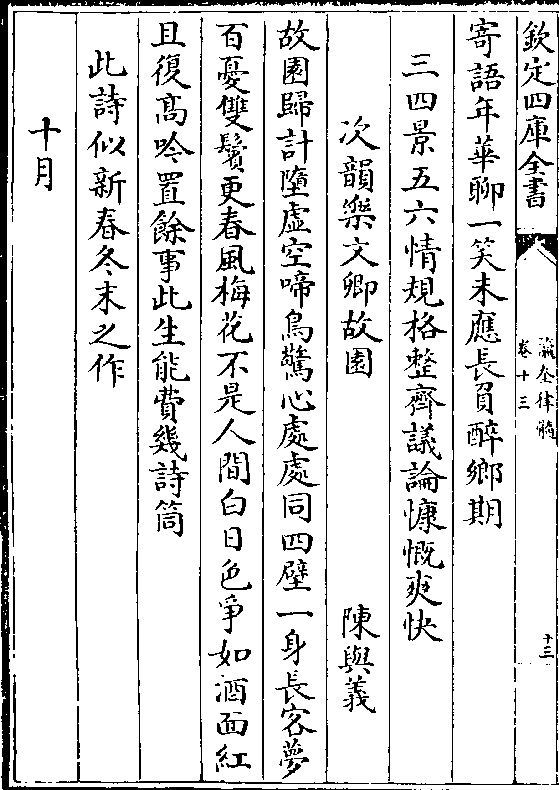 欽定四庫全書
瀛奎律髓
卷十三
十三
寄語年華聊一笑未應長負醉鄉期
三四景五六情規格整齊議論慷慨爽快
次韻樂文卿故園 陳與義
故園歸計墮虛空啼鳥驚心處處同四壁一身長客夢
百憂雙鬢更春風梅花不是人間白日色爭如酒面紅
且復高吟置餘事此生能費幾詩筒
此詩似新春冬末之作
十月